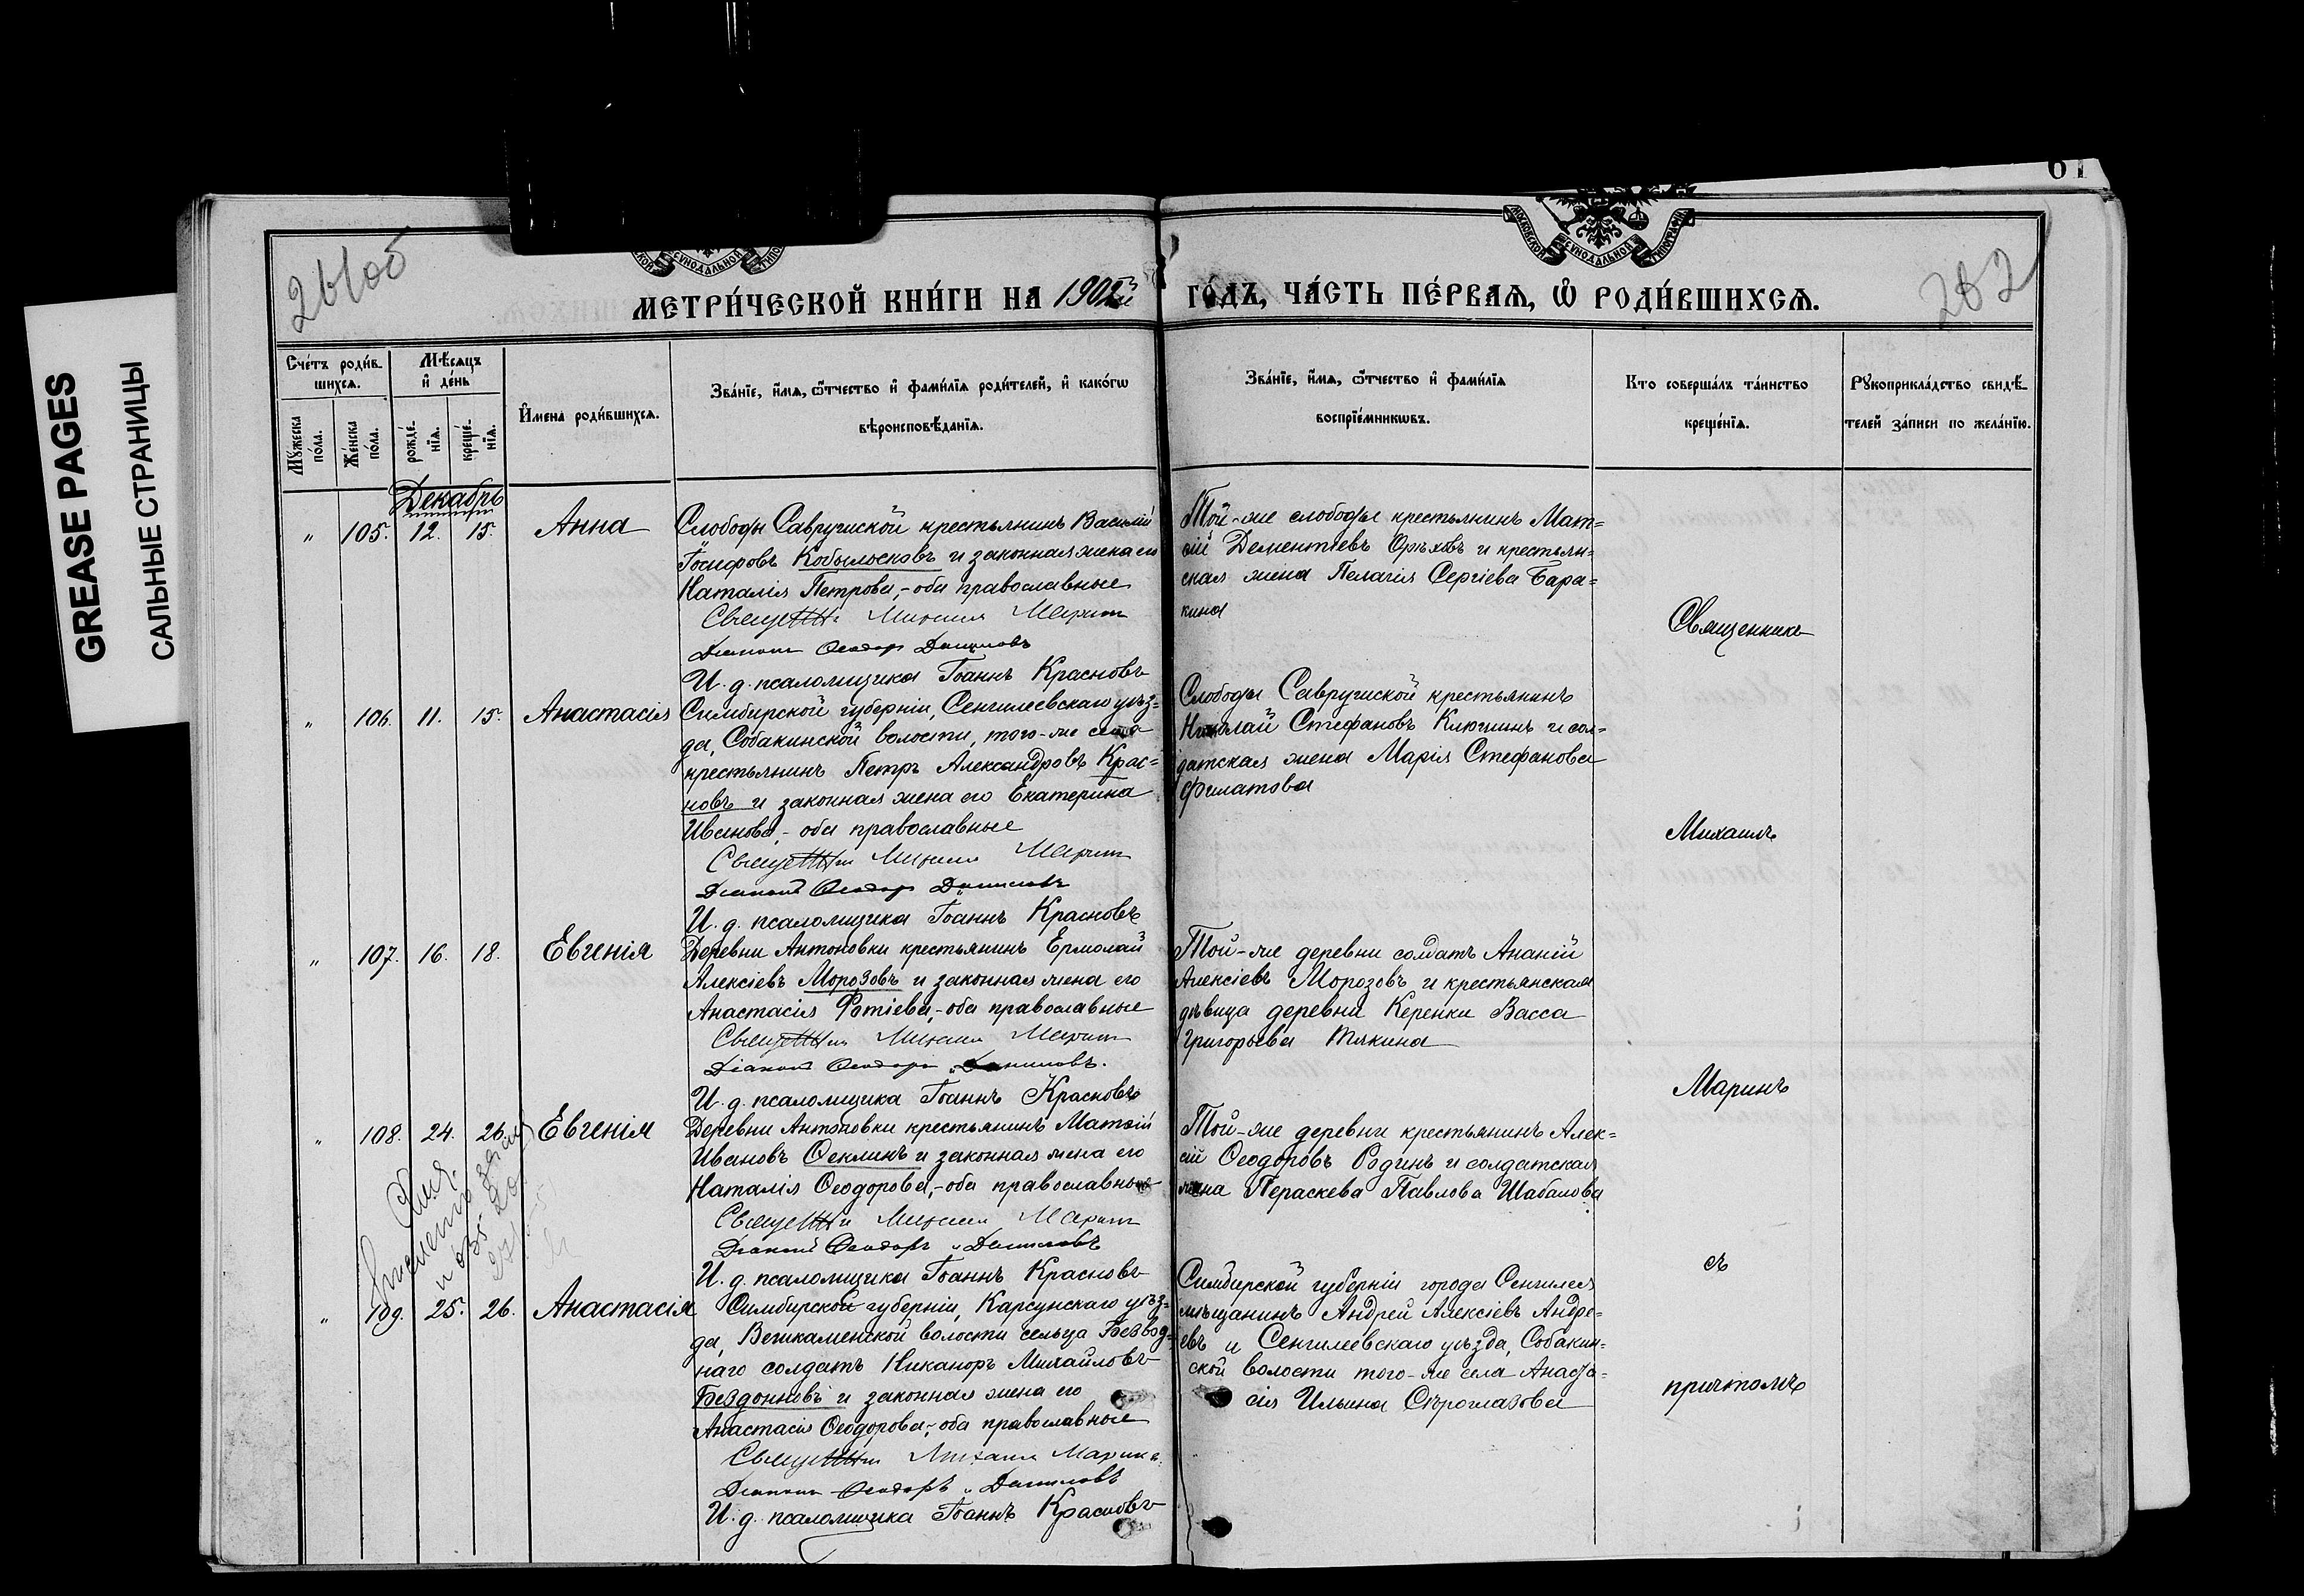 61
GREASE PAGES
САЛЬНЫЕ СТРАНИЦЫ
282
МОСКОВСКОЙ СУНОДАЛЬНОЙ ТИПОГРАФІИ
МЕТРИ́ЧЕСКОЙ КНИ́ГИ НА 1902й ГО́ДЪ, ЧА́СТЬ ПЕ́РВАѦ, Ѡ҆ РОДИ́ВШИХСѦ.
Сче́тъ роди́в-
шихсѧ.
Мꙋ́жеска по́ла.
Же́нска по́ла.
Мѣ́сяцъ
и҆ де́нь
рожде́-
нїѧ.
креще́-
нїѧ.
И҆мена роди́вшихсѧ.
Зва́нїе, и҆́мѧ, ѻ҆́тчество и҆ фами́лїѧ роди́телей, и҆ како́гѡ
вѣроисповѣ́данїѧ.
Зва́нїе, и҆́мѧ, ѻ҆́тчество и҆ фами́лїѧ
воспрїе́мникѡвъ.
Кто соверша́лъ та́инство
креще́нїѧ.
Рꙋкоприкла́дство свидѣ́-
телей за́писи по жела́нїю.
Декабрь
" 105. 12. 15. Анна
Слободы Саврушской крестьянинъ Василій
Іосифовъ Кобыльсковъ и законная жена его
Наталія Петрова,- оба православные
Священникъ Михаилъ Маринъ
Діаконъ Ѳеодоръ Даниловъ
И. д. псаломщика Іоаннъ Красновъ
Той-же слободы крестьянинъ Мат=
ѳій Дементіевъ Орѣховъ и крестьян=
ская жена Пелагія Сергіева Бара=
кина
" 106. 11. 15. Анастасія
Симбирской губерніи, Сенгилеевскаго уѣз=
да, Собакинской волости, того-же села
крестьянинъ Петръ Александровъ Крас=
новъ и законная жена его Екатерина
Иванова,- оба православные
Священникъ Михаилъ Маринъ
Діаконъ Ѳеодоръ Даниловъ
И. д. псаломщика Іоаннъ Красновъ
Слободы Саврушской крестьянинъ
Николай Стефановъ Клюшинъ и сол=
датская жена Марія Стефанова
Филатова
" 107. 16. 18. Евгенія
Деревни Антоновки крестьянинъ Ермолай
Алексіевъ Морозовъ и законная жена его
Анастасія Фотіева,- оба православные
Священникъ Михаилъ Маринъ
Діаконъ Ѳеодоръ Даниловъ.
И. д. псаломщика Іоаннъ Красновъ
Той-же деревни солдатъ Ананій
Алексіевъ Морозовъ и крестьянская
дѣвица деревни Керенки Васса
Григорьева Тякина
" 108. 24. 26. Евгенія
Деревни Антоновки крестьянинъ Матѳій
Ивановъ Ѳеклинъ и законная жена его
Наталія Ѳеодорова,- оба православные
Священникъ Михаилъ Маринъ
Діаконъ Ѳеодоръ Даниловъ
И. д. псаломщика Іоаннъ Красновъ
Той-же деревни крестьянинъ Алек=
сій Ѳеодоровъ Родинъ и солдатская
жена Параскева Павлова Шабалова
" 109. 25. 26. Анастасія
Симбирской губерніи, Карсунскаго уѣз=
да, Вешкаменской волости сельца Безвод=
наго солдатъ Никаноръ Михайловъ
Бездонновъ и законная жена его
Анастасія Ѳеодорова,- оба православные
Священникъ Михаилъ Маринъ
Діаконъ Ѳеодоръ Даниловъ
И. д. псаломщика Іоаннъ Красновъ
Симбирской губерніи города Сенгилея
мѣщанинъ Андрей Алексіевъ Андре=
евъ и Сенгилеевскаго уѣзда, Собакин=
ской волости того-же села Анаста=
сія Ильина Сѣроглазова
Священникъ
Михаилъ
Маринъ
съ
причтомъ